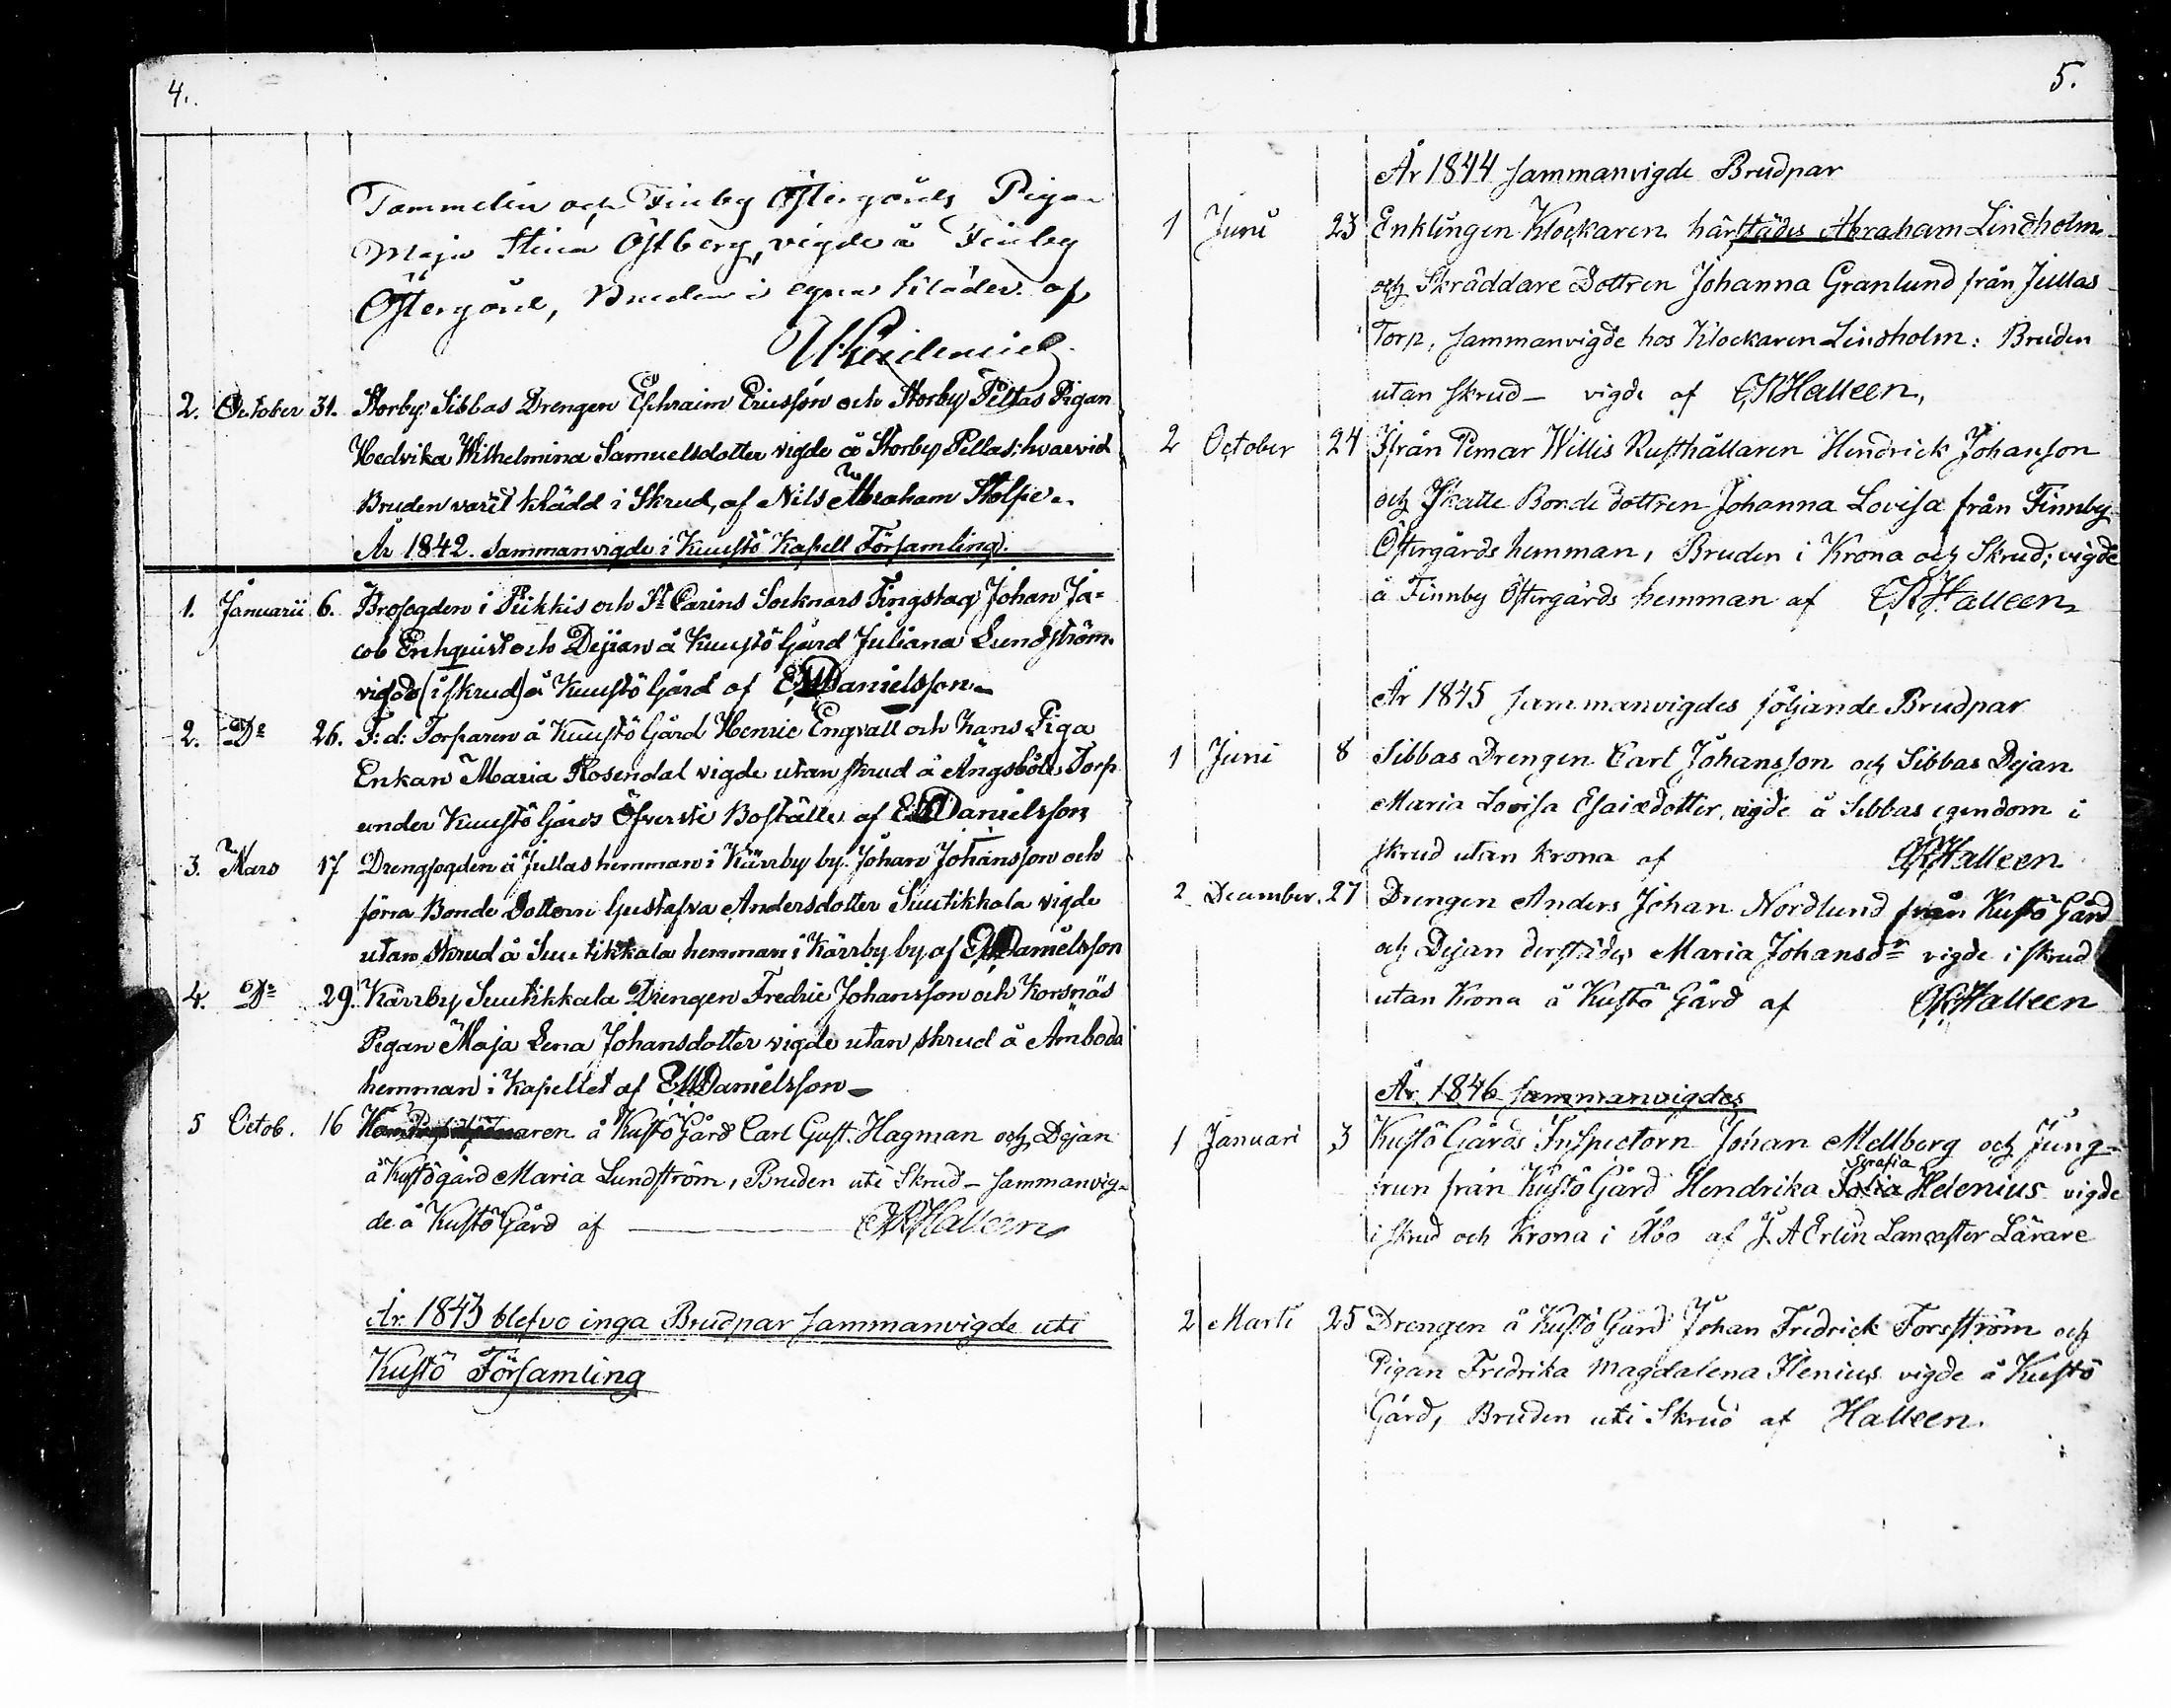 4.
Tammelin och Finby Östergårds Pigan
Maja Stina Östberg, vigde å Finby
Östergård, Bruden i egna kläder af
2. October 31. Storby Sibbas Drengen Ephraim Ericsson och Storby Pellas Pigan
Hedvika Wilhelmina Samuelsdotter vigde å Storby Pellas: hvarvid
Bruden varit klädd i Skrud, af Nils Abraham Stolpe.
År 1842. Sammanvigde i Kuustö Kapell Församling.
1. Januarii 6. Brofogden i Pikkis och St Carins Socknars Tingslag Johan Ja=
cob Enhquist och Dejian å Kuustö Gård Juliana Lundström.
vigde (i skrud) å Kuustö Gård af EWDanielsson
2. Do 26. F:d: Torparen å Kuustö Gård Henric Engvall och hans Piga
Enkan Maria Rosendal vigde utan skrud å Ängsböle Torp
under Kuustö Gårds Öfverste Boställe af EWDanielsson
3. Mars 17 Drengfogden å Jullas hemman i Kärrby by Johan Johansson och
förra Bonde Dottern Gustafva Andersdotter Suutikkala vigde
utan skrud å Suutikkala hemman i Kärrby by af EWDanielsson
4. Do 29. Kärrby Suutikkala Drengen Fredric Johansson och Korsnäs
Pigan Maja Lena Johansdotter vigde utan skrud å Ämboda
hemman i Kapellet af EWDanielsson
5 Octob. 16 å Kustö Gård Carl Gust. Hagman och Dejan
å Kustögård Maria Lundström, Bruden uti Skrud - sammanvig-
de å Kustö Gård af CRHalleen
År 1843 blefvo inga Brudpar sammanvigde uti
Kustö Församling
5.
År 1844 sammanvigde Brudpar
1 Juni 23 Enklingen Klockaren härstädes Abraham Lindholm
och Skräddare Dottren Johanna Granlund från Jullas
Torp, sammanvigde hos Klockaren Lindholm: Bruden
utan skrud – vigde af CRHalleen,
2 October 24 Ifrån Pemar Willis Rusthållaren Hendrick Johanson
och Skatte Bonde dottren Johanna Lovisa från Finnby
Östergårds hemman, Bruden i Krona och Skrud; vigde
å Finnby Östergårds hemman af CRHalleen
År 1845 sammanvigdes följande Brudpar
1 Juni 8 Sibbas Drengen Carl Johansson och Sibbas Dejan
Maria Lovisa Esaiædotter, vigde å Sibbas egendom i
skrud utan krona af CRHalleen
2 December. 27 Drengen Anders Johan Nordlund från Kustö Gård
och Dejan derstädes Maria Johansdr vigde i skrud
utan Krona å Kustö Gård af CRHalleen
År 1846 sammanvigdes
1 Januari 3 Kustö Gårds Inspectorn Johan Mellberg och Jung-
Serafia
frun från Kustö Gård Hendrika Sofia Helenius vigde
i skrud och krona i Åbo af J. A Erlin Lancaster Lärare
2 Marti 25 Drengen å Kustö Gård Johan Fredrick Forsström och
Pigan Fredrika Magdalena Ilenius vigde å Kustö
Gård, Bruden uti Skrud af Halleen.